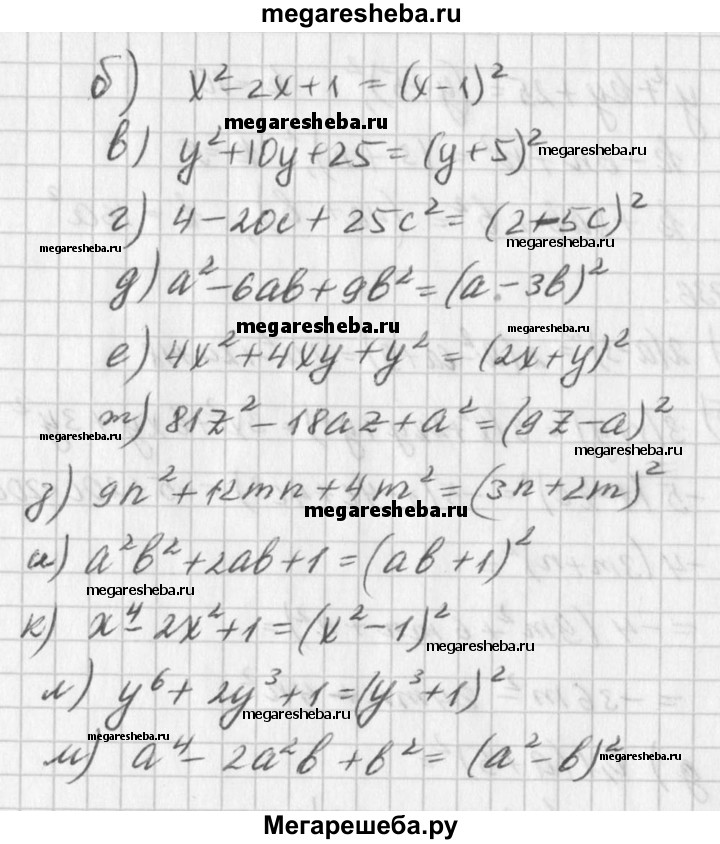 megaresheba.ru
б) x²-2x+1=(x-1)²
megaresheba.ru
в) y²+10y+25=(y+5)² megaresheba.ru
г) 4-20c+25c²=(2-5c)²
megaresheba.ru megaresheba.ru
д) a²-6ab+9b²=(a-3b)²
megaresheba.ru megaresheba.ru
е) 4x²+4xy+y²=(2x+y)²
ж) 81z²-18az+a²=(9z-a)²
megaresheba.ru megaresheba.ru
з) 9n²+12mn+4m²=(3n+2m)²
megaresheba.ru
и) a²b²+2ab+1=(ab+1)²
megaresheba.ru
к) x⁴-2x²+1=(x²-1)²
megaresheba.ru
л) y⁶+2y³+1=(y³+1)²
megaresheba.ru
megaresheba.ru
м) a⁴-2a²b+b²=(a²-b)²
megaresheba.ru
Мегарешеба.ру